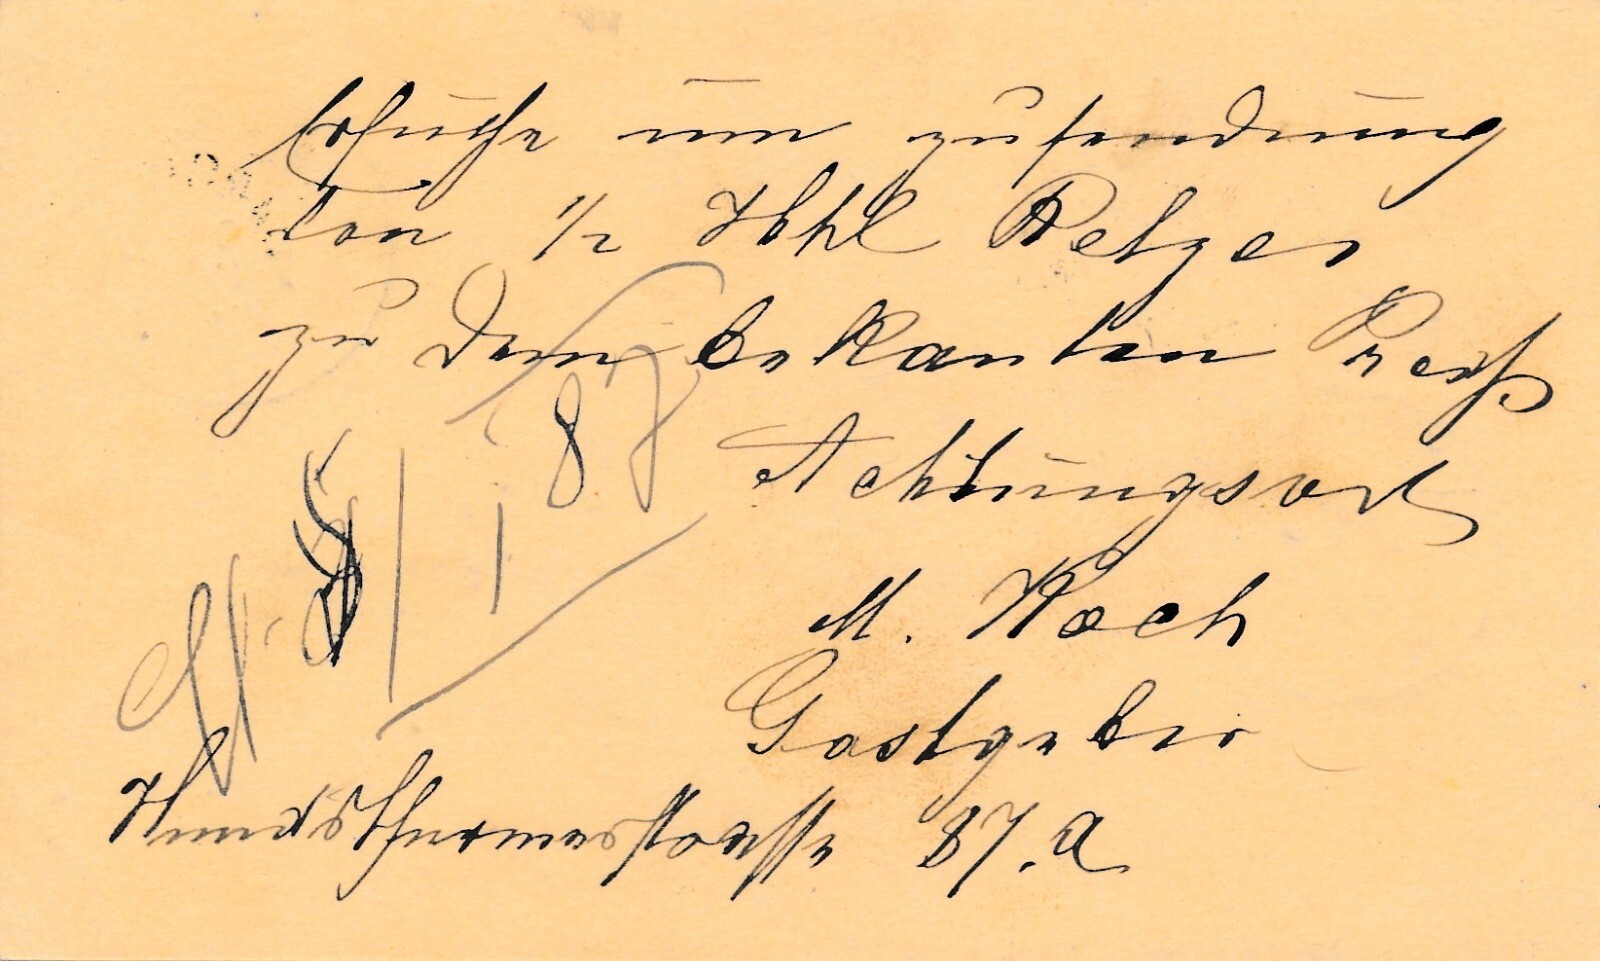 Ersuche um zusendung
von 1/2 Hhtl Retzer
zu dem bekanten Preiß
Achtungsvol
M. Koch
Gastgeber
Hundsthurmerstrasse 87.a
8/1 87